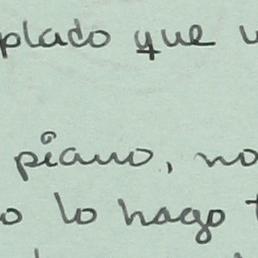 plado que
piano, no
o lo hago